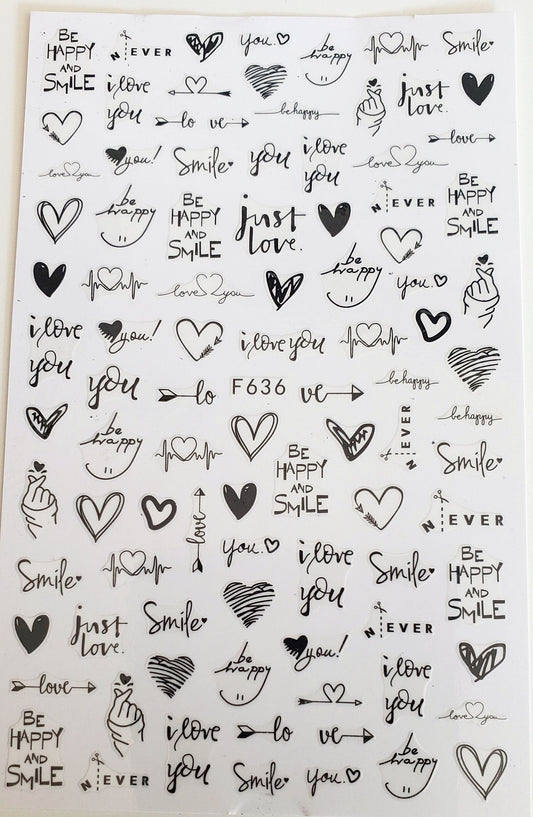 BE
HAPPY
AND
SMiLE
N EVER
you.
be
happy
Smile
i love
you
just
love.
lo ve
be happy
love
love you
you!
Smile
you
i love
you
love you
be
happy
BE
HAPPY
AND
SMiLE
just
love.
N EVER
BE
HAPPY
AND
SMiLE
be
happy
love you
you.
i love
you
you!
i love you
you
lo
F636
ve
be happy
be happy
be
happy
N EVER
Smile
BE
HAPPY
AND
SMiLE
love
N EVER
you.
i love
you
Smile
Smile
BE
HAPPY
AND
SMiLE
just
love.
Smile
N EVER
you!
be
happy
i love
you
love
love you
BE
HAPPY
AND
SMiLE
N EVER
i love
you
lo ve
Smile
you.
be
happy